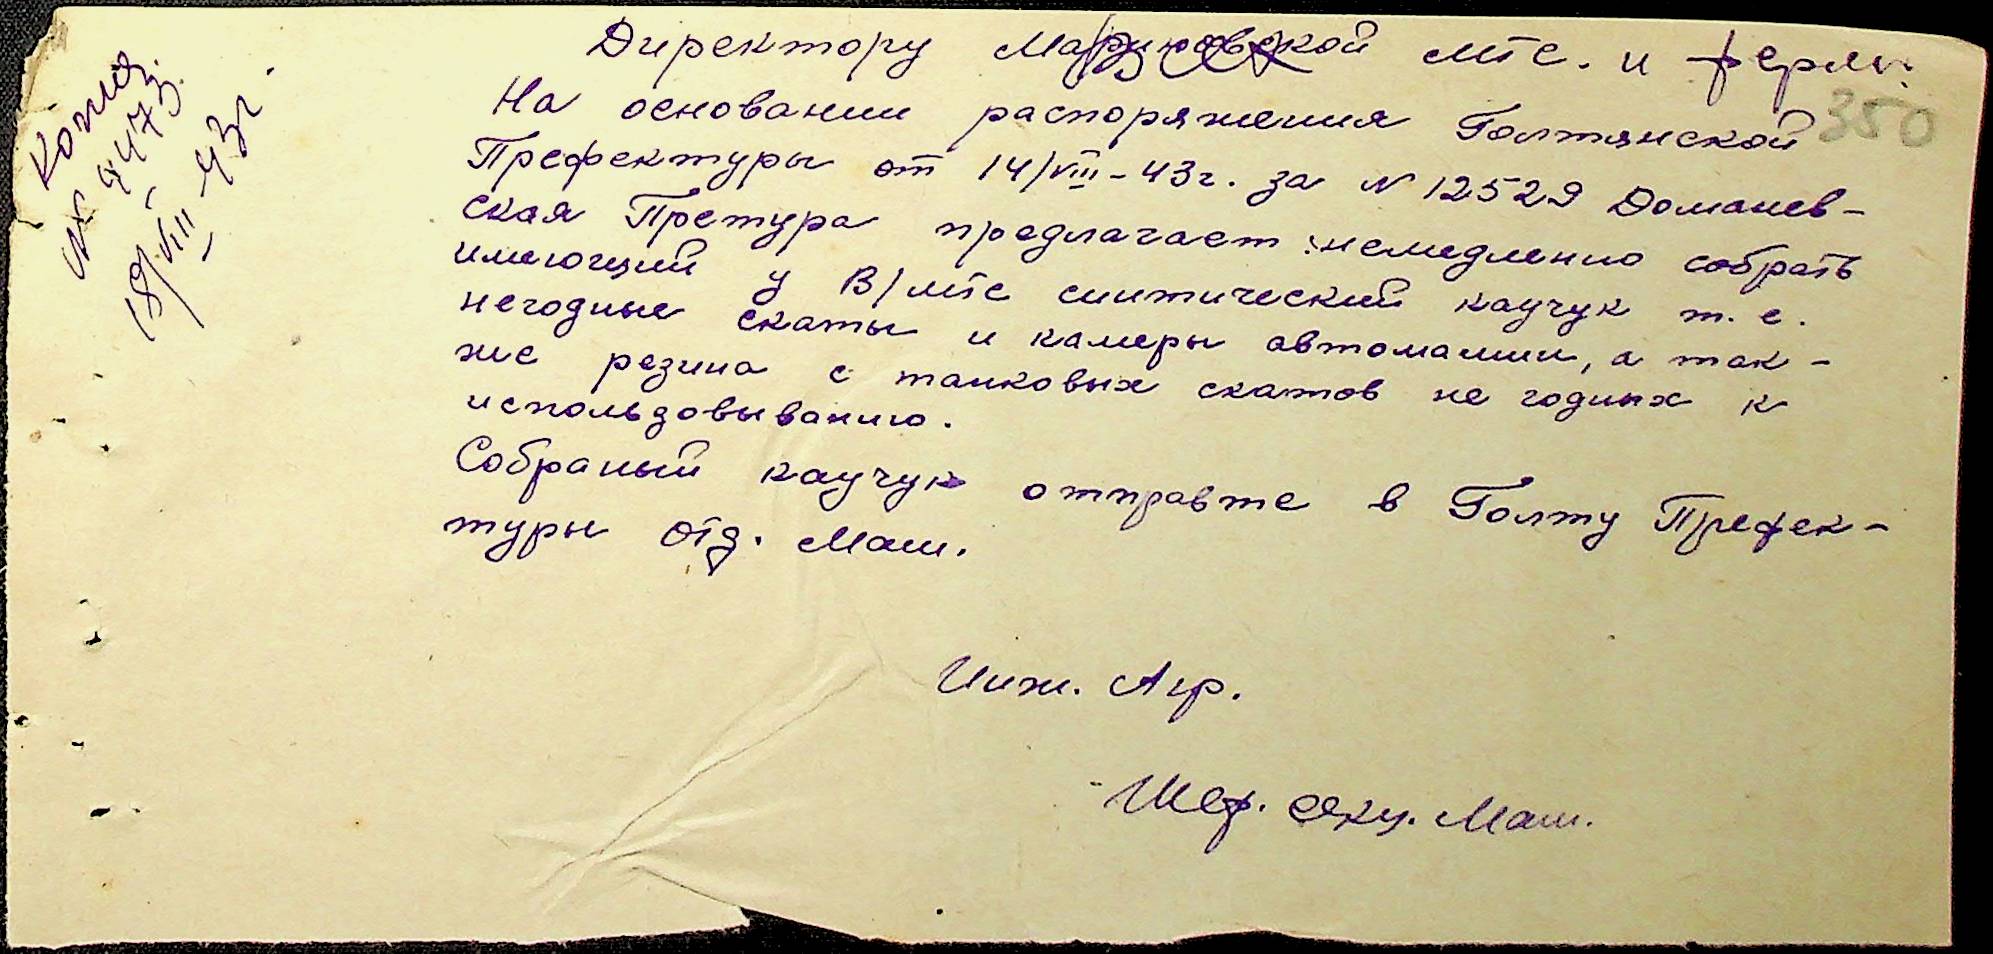 Копия.
№ 4473.
18/VIII-43г.
Директору Мариновской МТС. и ферм.
350
На основании распоряжения Голтянской
Префектуры от 14/VIII-43г. за N 12529 Доманев-
ская Претура предлагает: немедленно собрать
имеющий у В/МТС синтический каучук т. е.
негодные скаты и камеры автомашин, а так-
же резина с танковых скатов не годных к
использовыванию.
Собраный каучук отправте в Голту Префек-
туры Отд. Маш.
Инж. Агр.
Шеф. секц. Маш.